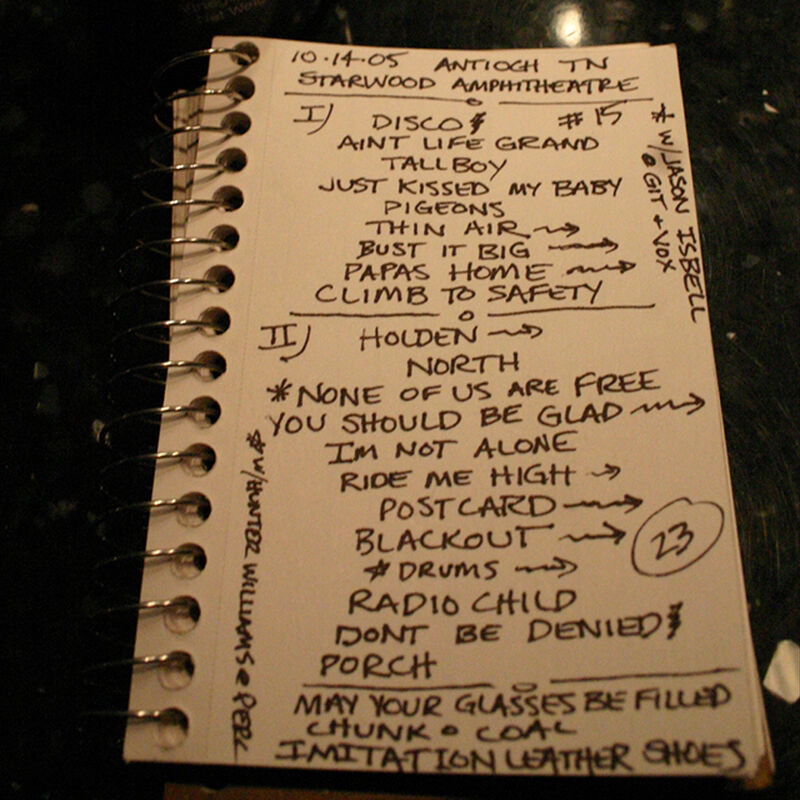 10·14·05 ANTIOCH TN
STARWOOD AMPHITHEATRE
I) DISCO #15
AINT LIFE GRAND
TALLBOY
JUST KISSED MY BABY
PIGEONS
THIN AIR →
BUST IT BIG →
PAPAS HOME →
CLIMB TO SAFETY
* W/JASON ISBELL
@ GIT + VOX
II) HOLDEN →
NORTH
*NONE OF US ARE FREE
YOU SHOULD BE GLAD →
IM NOT ALONE
RIDE ME HIGH →
POSTCARD →
BLACKOUT →
23
# DRUMS →
RADIO CHILD
DONT BE DENIED
PORCH
# W/HUNTER WILLIAMS @ PERC
MAY YOUR GLASSES BE FILLED
CHUNK O COAL
IMITATION LEATHER SHOES